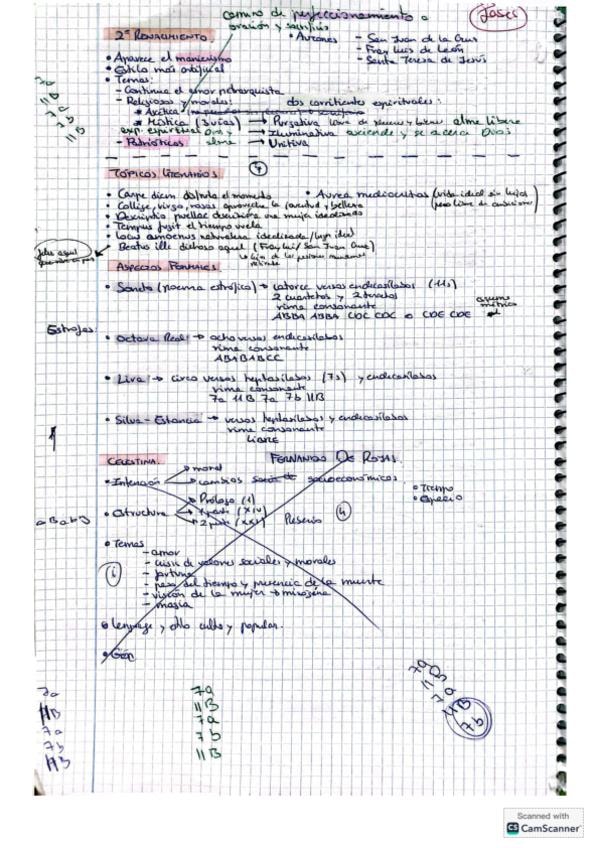 camino de perfeccionamiento a
oración y sacrificio
2º RENACIMIENTO
• Autores
- San Juan de la Cruz
- Fray Luis de León
- Santa Teresa de Jesús
• Aparece el manierismo
• Estilo más artificial
• Temas:
- Continua el amor petrarquista
- Religiosos y morales: dos corrientes espirituales:
* Ascética
* Mística (3 vías) → Purgativa alma libre
exp. espiritual Dios y alma → Iluminativa asciende y se acerca Dios
→ Unitiva
- Patrióticos
TÓPICOS LITERARIOS
4
• Carpe diem disfruta el momento
• Aurea mediocritas (vida ideal sin lujos
• Collige, virgo, rosas aprovecha la juventud y belleza
• Descriptio puellae descripción una mujer idealizada
• Tempus fugit el tiempo vuela
• Locus amoenus naturaleza idealizada/lugar ideal
• Beatus ille dichoso aquel (Fray Luis/San Juan Cruz)
ASPECTOS FORMALES
• Soneto (poema estrófico) → catorce versos endecasílabos (11s)
2 cuartetos y 2 tercetos
rima consonante
ABBA ABBA CDC CDC o CDE CDE
Estrofas:
• Octava Real → ocho versos endecasílabos
rima consonante
ABABABCC
• Lira → cinco versos heptasílabos (7s) y endecasílabos
rima consonante
7a 11B 7a 7b 11B
• Silva - Estancia → versos heptasílabos y endecasílabos
rima consonante
LIBRE
CELESTINA
FERNANDO DE ROJAS.
• Intención
→ moral
→ cambios socioeconómicos
• Tiempo
• Espacio
• Estructura
→ Prólogo (1)
→ 1 parte (XIV)
→ 2 parte (XXI)
4
• Temas
- amor
- crisis de valores sociales y morales
- fortuna
- paso del tiempo y presencia de la muerte
- visión de la mujer → misógina
- magia
• Lenguaje y estilo culto y popular.
7a
11B
7a
7b
11B
7a
11B
7a
7b
11B
7a
11B
7a
11B
7b
Scanned with
CS CamScanner